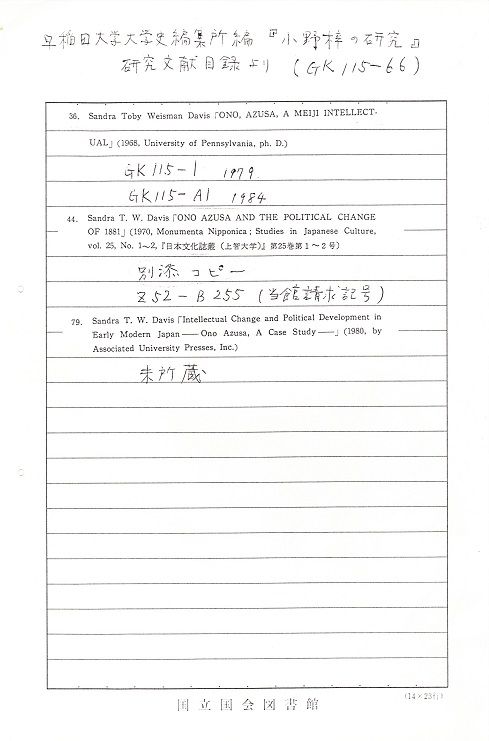 早稲田大学大学史編集所編『小野梓の研究』
研究文献目録より (GK115-66)
36. Sandra Toby Weisman Davis「ONO, AZUSA, A MEIJI INTELLECT-
UAL」(1968, University of Pennsylvania, ph. D.)
GK115-1 1979
GK115-A1 1984
44. Sandra T. W. Davis「ONO AZUSA AND THE POLITICAL CHANGE
OF 1881」(1970, Monumenta Nipponica; Studies in Japanese Culture,
vol. 25, No. 1~2,『日本文化誌叢(上智大学)』第25巻第1~2号)
別添コピー
Z52-B255 (当館請求記号)
79. Sandra T. W. Davis「Intellectual Change and Political Development in
Early Modern Japan——Ono Azusa, A Case Study——」(1980, by
Associated University Presses, Inc.)
未所蔵
(14×23行)
国立国会図書館